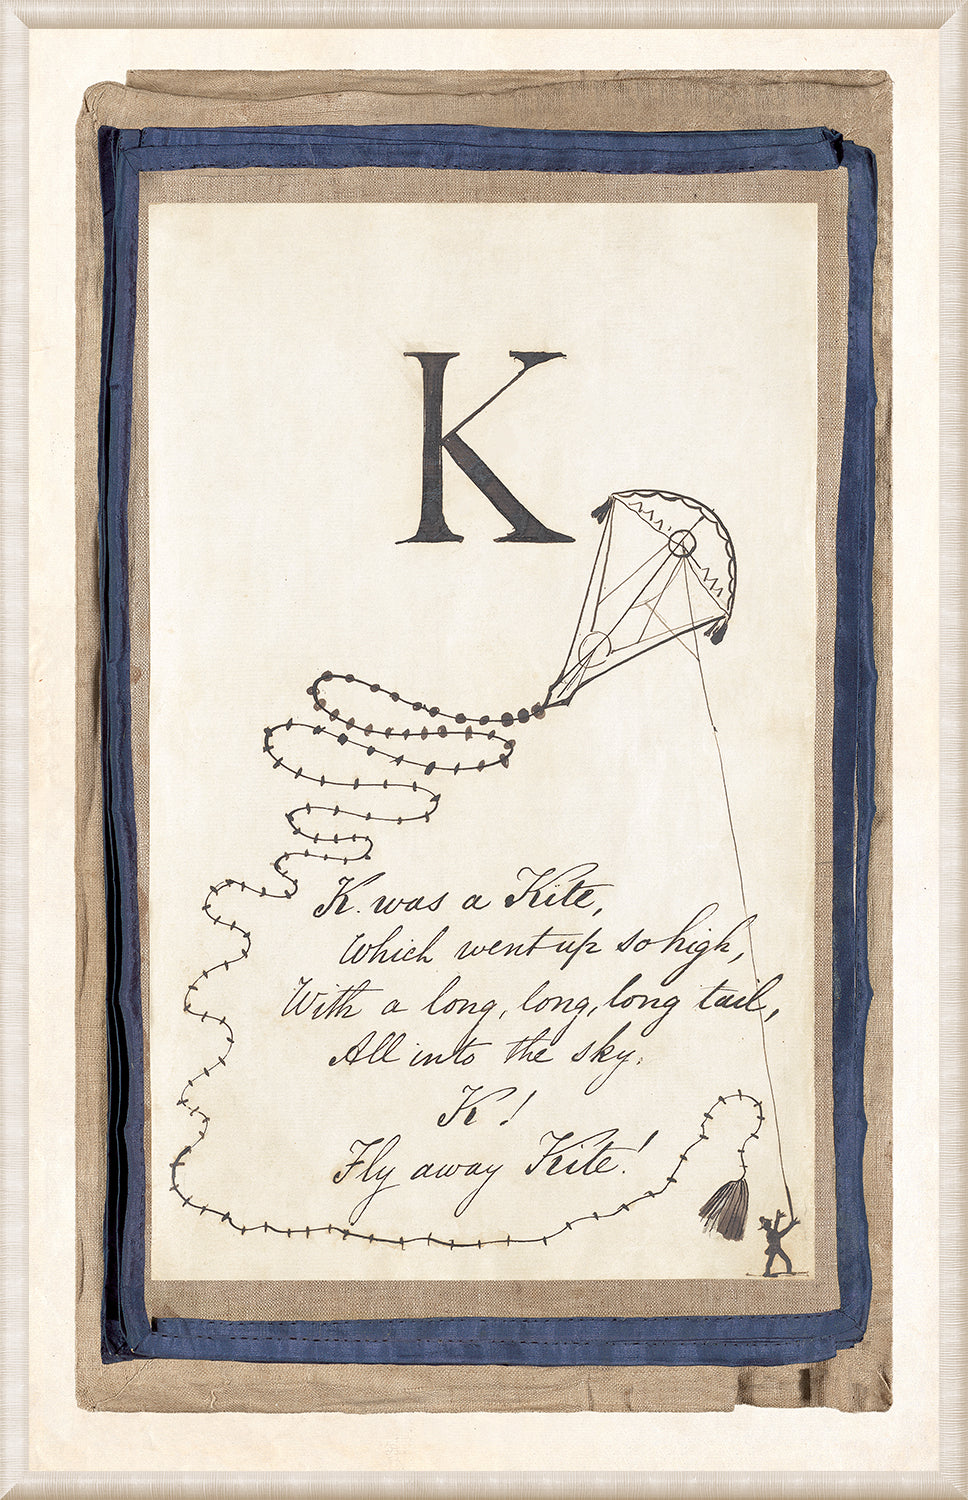 K
K. was a Kite,
Which went up so high,
With a long, long, long tail,
All into the sky.
K!
Fly away Kite!